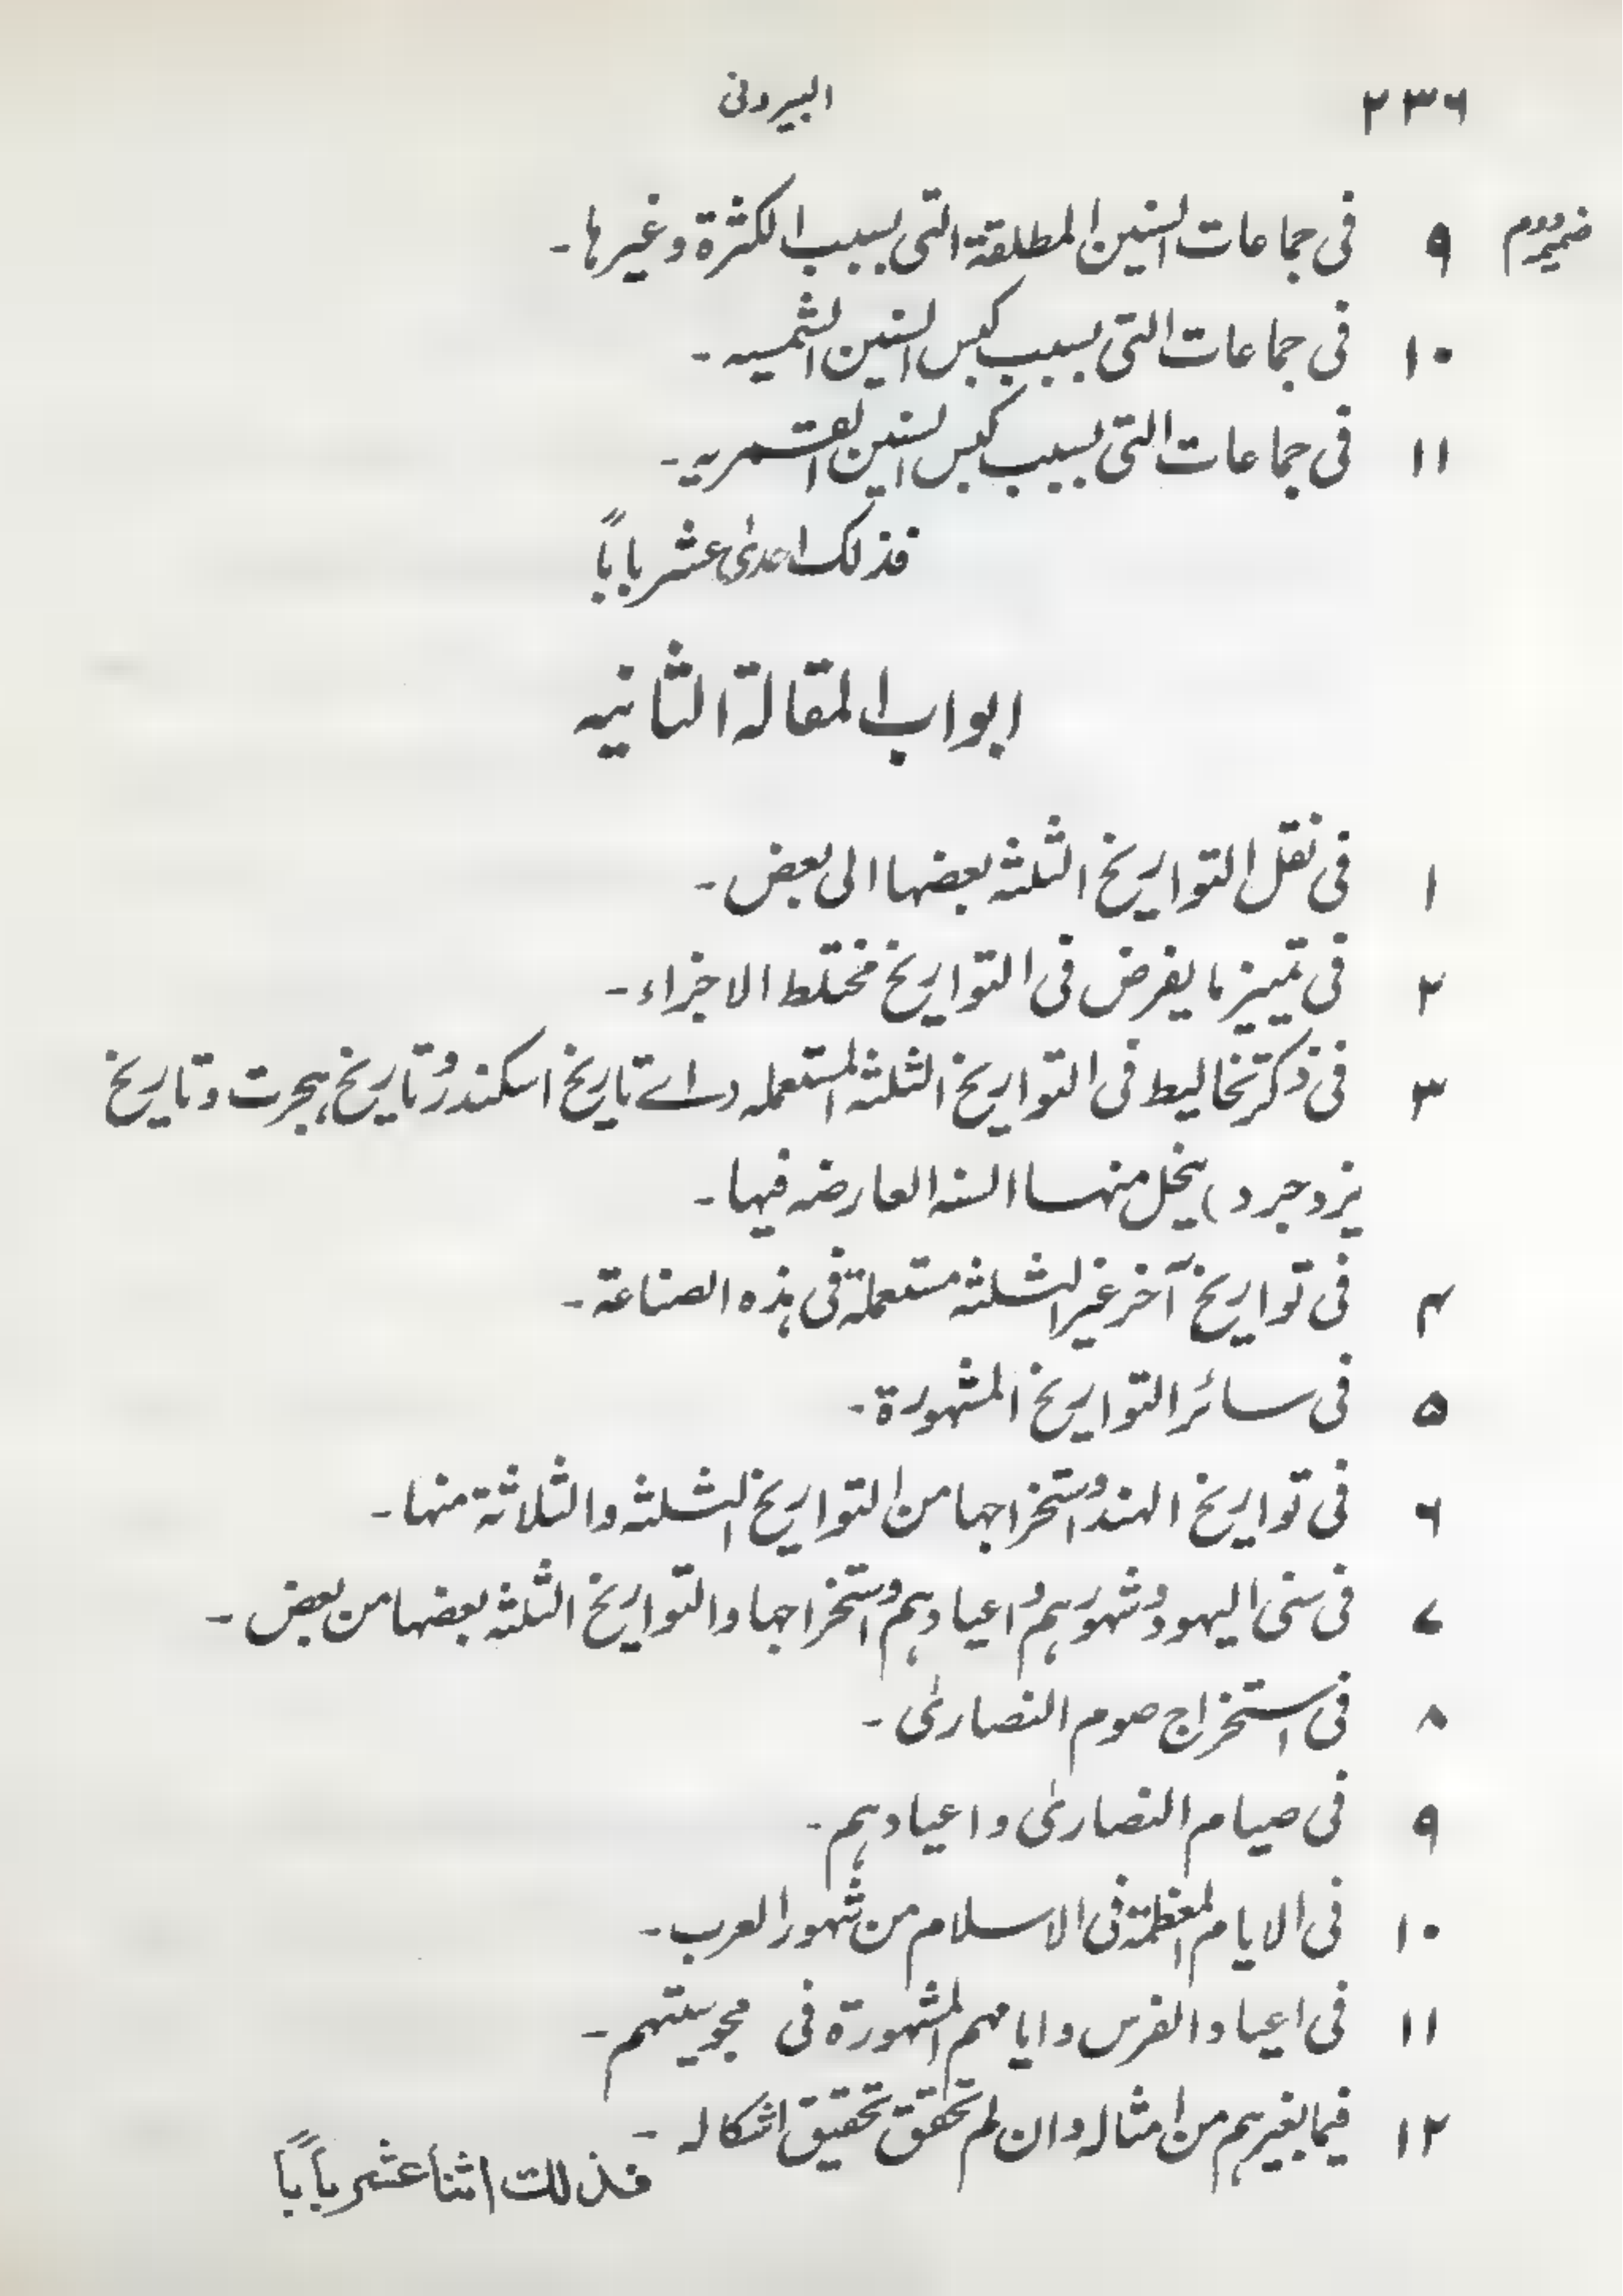 ۲۳۶ البیرونی
ضمیمہ دوم
۹ فی جماعات السنین المطلقة التی بسبب الکثرة و غیرہا۔
۱۰ فی جماعات التی بسبب کبس السنین الشمسیہ۔
۱۱ فی جماعات التی بسبب کبس السنین القمریہ۔
فذلک احدیٰ عشر باباً
ابواب المقالة الثانیہ
۱ فی نقل التواریخ الثلثہ بعضہا الی بعض۔
۲ فی تمییز ما یفرض فی التواریخ مختلط الاجزاء۔
۳ فی ذکر تخالیط فی التواریخ الثلثہ المستعملہ (اے تاریخ اسکندر و تاریخ ہجرت و تاریخ
یزدجرد) ینحل منہا السنہ العارضہ فیہا۔
۴ فی تواریخ آخر غیر الثلثہ مستعملة فی ہذہ الصناعة۔
۵ فی سائر التواریخ المشہورة۔
۶ فی تواریخ الہند و استخراجہا من التواریخ الثلثہ والثلاثة منہا۔
۷ فی سنی الیہود و شہورہم و اعیادہم و استخراجہا والتواریخ الثلثہ بعضہا من بعض۔
۸ فی استخراج صوم النصاریٰ۔
۹ فی صیام النصاریٰ و اعیادہم۔
۱۰ فی الایام المعظمة فی الاسلام من شہور العرب۔
۱۱ فی اعیاد الفرس و ایامہم المشہورة فی مجوسیتہم۔
۱۲ فیما بغیرہم من امثالہ و ان لم تحقق تحقیق اشکالہ۔
فذلک اثنا عشر باباً